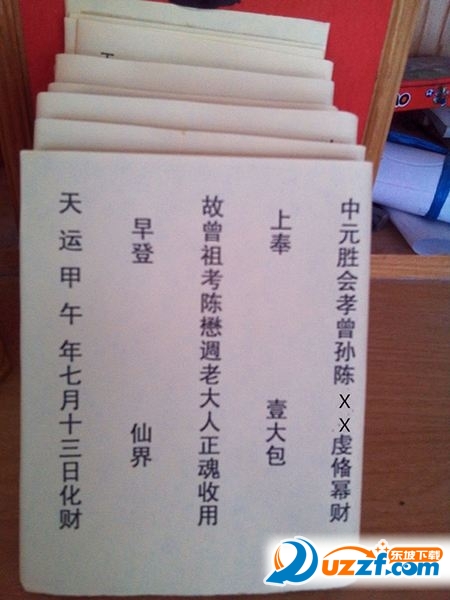 中元胜会孝曾孙陈XX虔俻冪财
上奉 壹大包
故曾祖考陈懋週老大人正魂收用
早登 仙界
天运甲午年七月十三日化财
东坡下载
uzzf.com